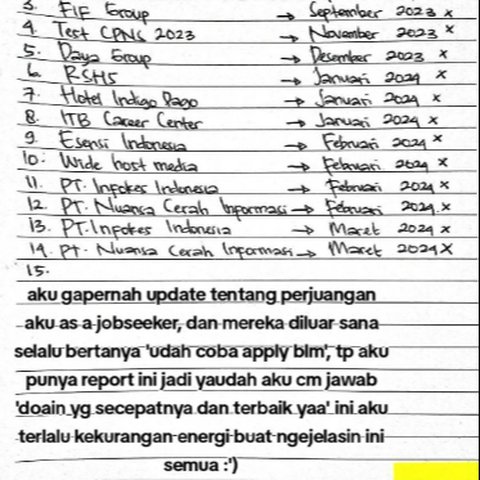 3. FIF Group → September 2023 x
4. Test CPNS 2023 → November 2023 x
5. Daya Group → Desember 2023 x
6. RSHS → Januari 2024 x
7. Hotel Indigo Dago → Januari 2024 x
8. ITB Career Center → Januari 2024 x
9. Esensi Indonesia → Februari 2024 x
10. Wide host media → Februari 2024 x
11. PT. Infokes Indonesia → Februari 2024 x
12. PT. Nuansa Cerah Informasi → Februari 2024 x
13. PT. Infokes Indonesia → Maret 2024 x
14. PT. Nuansa Cerah Informasi → Maret 2024 x
15.
aku gapernah update tentang perjuangan
aku as a jobseeker, dan mereka diluar sana
selalu bertanya 'udah coba apply blm', tp aku
punya report ini jadi yaudah aku cm jawab
'doain yg secepatnya dan terbaik yaa' ini aku
terlalu kekurangan energi buat ngejelasin ini
semua :')